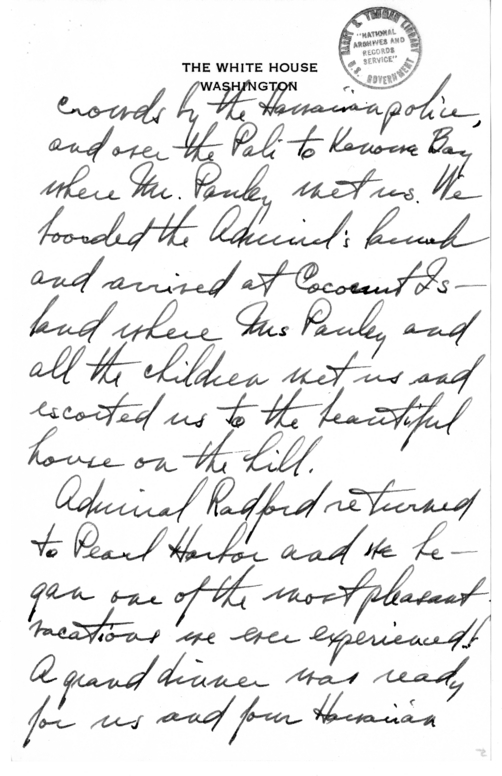 HARRY S. TRUMAN LIBRARY
"NATIONAL
ARCHIVES AND
RECORDS
SERVICE"
U.S. GOVERNMENT
THE WHITE HOUSE
WASHINGTON
crowds by the Hawaiian police,
and over the Pali to
Bay
where Mr. Pauley met us. We
boarded the Admiral's launch
and arrived at Cocoanut Is-
land where Mrs Pauley and
all the children met us and
escorted us to the beautiful
house on the hill.
Admiral Radford returned
to Pearl Harbor and we be-
gan one of the most pleasant
vacations we ever experienced!
A grand dinner was ready
for us and four Hawaiian
2